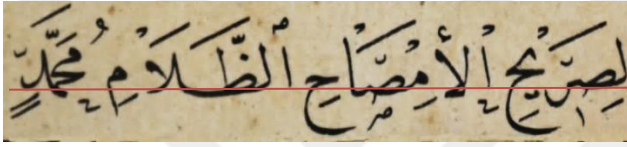 لِصَرِيْحِ اْلأمِصْبَاحِ اْلظَّلَامِ مُحَمَّدٍ